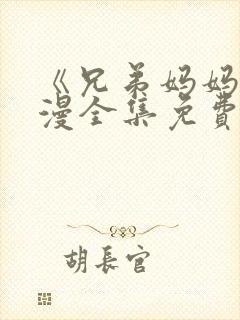 《兄弟妈妈
漫全集免費
胡長官